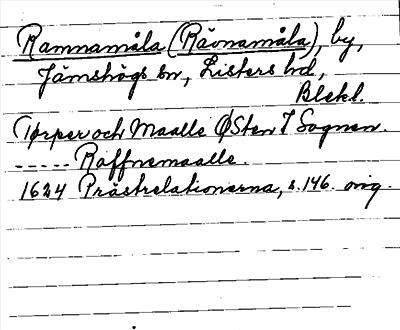 Ramnamåla (Rävnamåla), by,
Jämshögs sn, Listers hd,
Blekl.
Torper och Maalle ØSten J Sognen.
----- Raffnemaalle.
1624 Prästrelationerna, s. 146. orig.